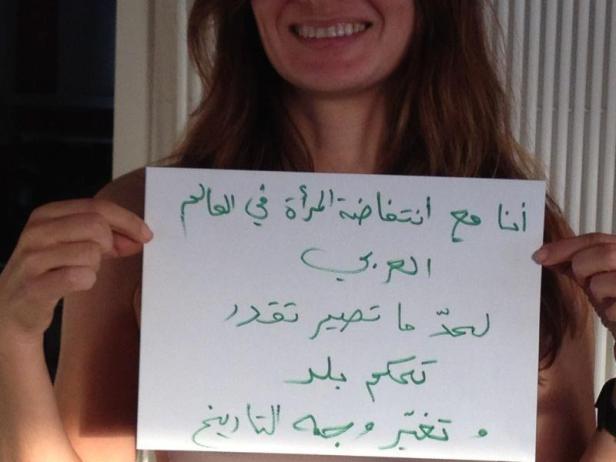 أنا مع انتفاضة المرأة في العالم
العربي
لحدّ ما تصير تقدر
تحكم بلد
و تغيّر وجه التاريخ